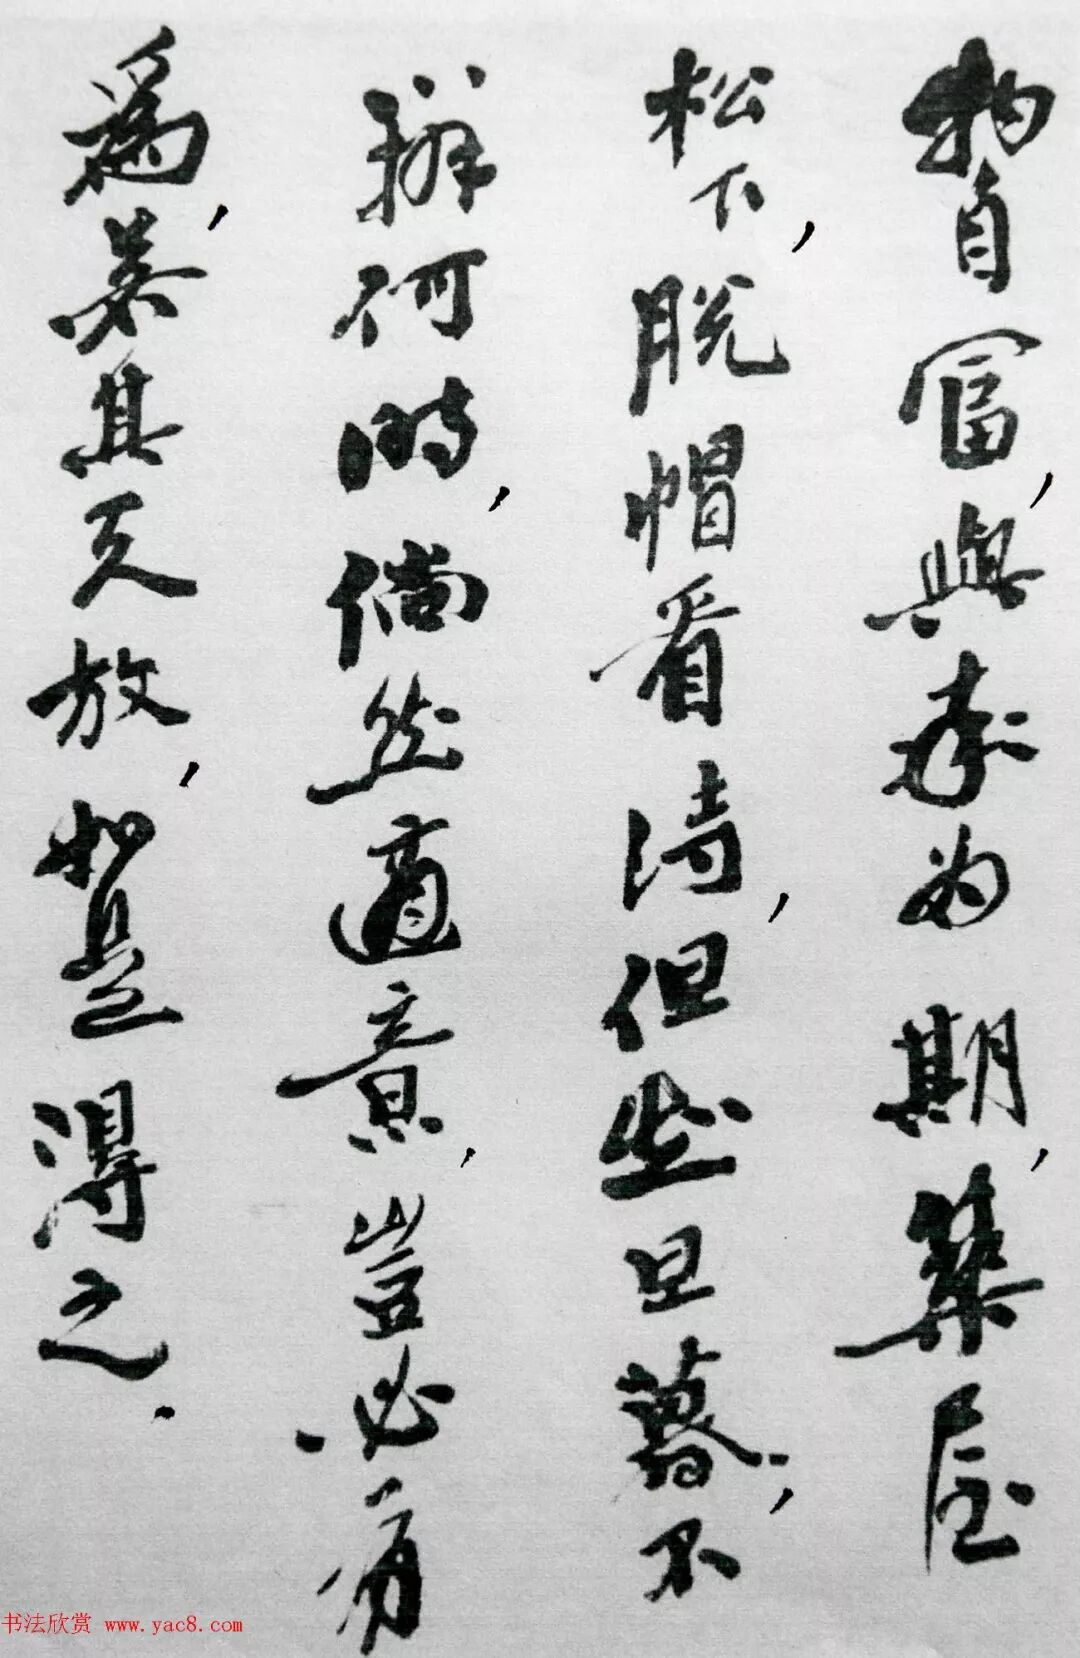 物自富，與率为期，築屋
松下，脱帽看诗，但坐旦暮，不
辨何時，倘然適意，豈必有
為，若其天放，如是得之.
书法欣赏 www.yac8.com